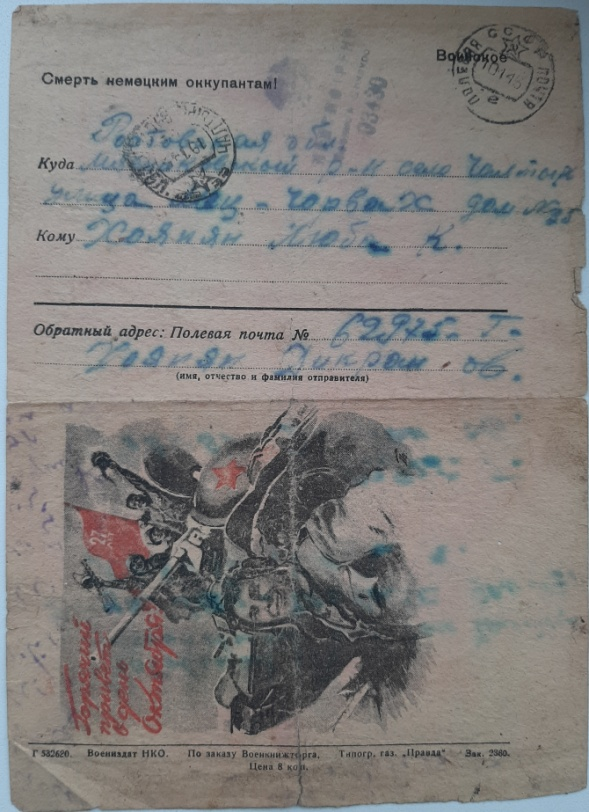 Воинское
Смерть немецким оккупантам!
ПОЛЕВАЯ ПОЧТА
03430
Куда Ростовская обл.
р-н село Чалтырь
улица дом № 35
Кому Хоянян Люба К.
Обратный адрес: Полевая почта № 62975-Г-
Хоянян Дикран ов.
(имя, отчество и фамилия отправителя)
27 лет
Горячий
привет
в день
Октября!
Г 532620. Воениздат НКО. По заказу Военкнижторга. Типогр. газ. „Правда" Зак. 2360.
Цена 8 коп.